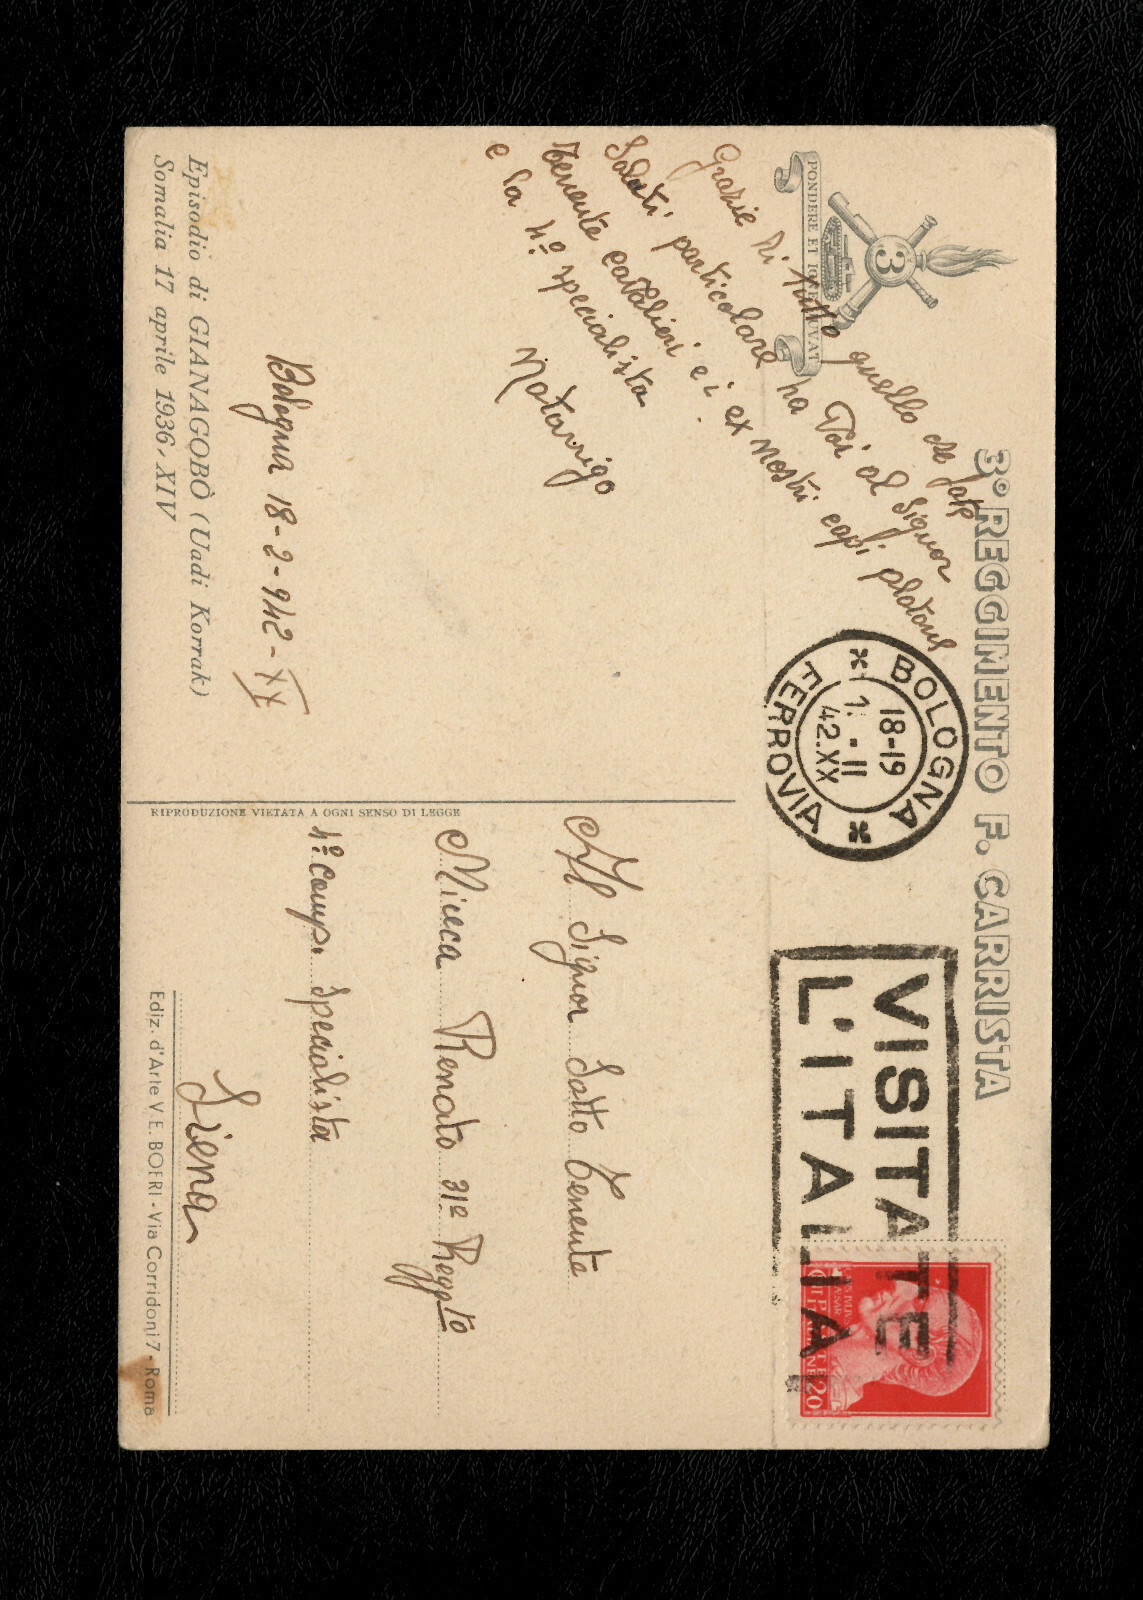 3° REGGIMENTO F. CARRISTA
PONDERE ET IGNE IUVAT
3
Grazie di tutto quello che fate
Saluti particolare ha Voi al Signor
Tenente Cavalieri e i ex nostri capi platone
e la 4º specialista
Notarrigo
Bologna 18-2-942-XX
Episodio di GIANAGOBÒ (Uadi Korrak)
Somalia 17 aprile 1936-XIV
RIPRODUZIONE VIETATA A OGNI SENSO DI LEGGE
BOLOGNA
18-19
-II
42.XX
FERROVIA
VISITATE
L'ITALIA
20
Al Signor Sotto Tenente
Renato 31º Reggto
4º Comp. Specialista
Siena
Ediz. d'Arte V. E. BOERI - Via Corridoni 7 - Roma